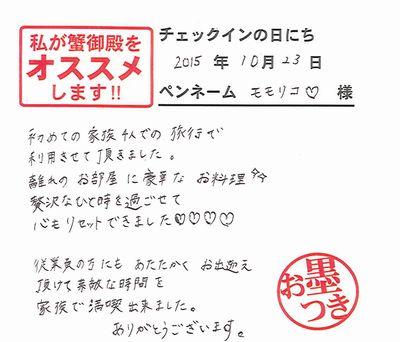 私が蟹御殿を
オススメ
します!!
チェックインの日にち
2015 年 10月 23 日
ペンネーム モモリコ♡ 様
初めての 家族 4人での 旅行で
利用させて 頂きました。
離れの お部屋 に 豪華な お料理
贅沢なひと時を過ごせて
心もリセットできました♡♡♡♡
従業員の方にも あたたかく お出迎え
頂けて 素敵な時間を
家族で 満喫 出来ました。
ありがとうございます。
お墨
つき